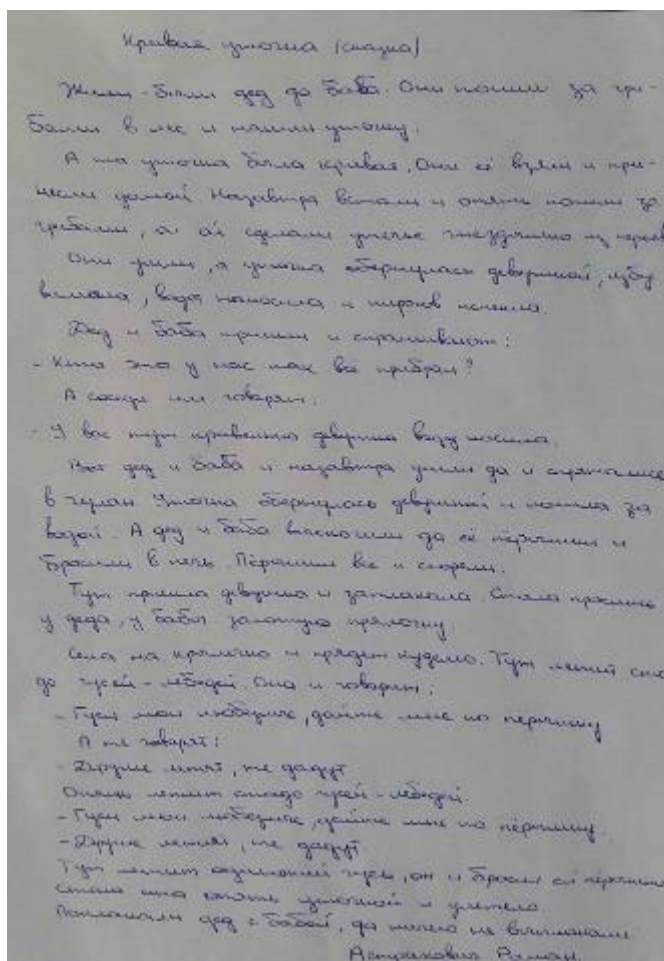 Кривая уточка (сказка)
Жили-были дед да баба. Они пошли за гри-
бами в лес и нашли уточку.
А та уточка была кривая, Они её взяли и при-
несли домой. Назавтра встали и опять пошли за
грибами, а ей сделали утечье гнёздышко из перьев
Они ушли, а уточка обернулась девушкой, избу
вымела, воды наносила и пирогов испекла.
Дед и баба пришли и спрашивают:
- Кто это у нас так всё прибрал?
А соседи им говорят.
- У вас тут кривенька девушка воду носила.
Вот дед и баба и назавтра ушли да и спрятались
в чулан Уточка обернулась девушкой и пошла за
водой. А дед и баба выскочили да её пёрышки и
бросили в печь. Пёрышки все и сгорели.
Тут пришла девушка и заплакала. Стала просить
у деда, у бабы золотую прялочку.
Села на крылечко и прядет куделю. Тут летит ста
до гусей-лебедей. Она и говорит:
- Гуси мои любезные, дайте мне по пёрышку
А те говорят:
- Другие летят, те дадут
Опять летит стадо гусей-лебедей.
- Гуси мои любезные, дайте мне по пёрышку.
- Другие летят, те дадут
Тут летит одинокий гусь, он и бросил ей пёрышки
Стала она опять уточкой и улетела.
Поплакали дед с бабой, да ничего не
Роман.